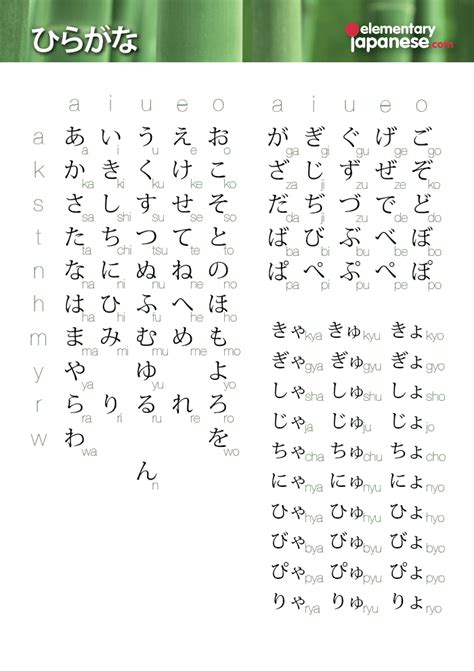 ひらがな
elementary
japanese.com
a i u e o
a あ い う え お
a i u e o
k か き く け こ
ka ki ku ke ko
s さ し す せ そ
sa shi su se so
t た ち つ て と
ta chi tsu te to
n な に ぬ ね の
na ni nu ne no
h は ひ ふ へ ほ
ha hi fu he ho
m ま み む め も
ma mi mu me mo
y や ゆ よ
ya yu yo
r ら り る れ ろ
ra ri ru re ro
w わ を
wa wo
ん
n
a i u e o
が ぎ ぐ げ ご
ga gi gu ge go
ざ じ ず ぜ ぞ
za ji zu ze ko
だ ぢ づ で ど
da ji zu de do
ば び ぶ べ ぼ
ba bi bu be bo
ぱ ぺ ぷ ぺ ぽ
pa pi pu pe po
きゃ kya きゅ kyu きょ kyo
ぎゃ gya ぎゅ gyu ぎょ gyo
しゃ sha しゅ shu しょ sho
じゃ ja じゅ ju じょ jo
ちゃ cha ちゅ chu ちょ cho
にゃ nya にゅ nyu にょ nyo
ひゃ hya ひゅ hyu ひょ hyo
びゃ bya びゅ byu びょ byo
ぴゃ pya ぴゅ pyu ぴょ pyo
りゃ rya りゅ ryu りょ ryo